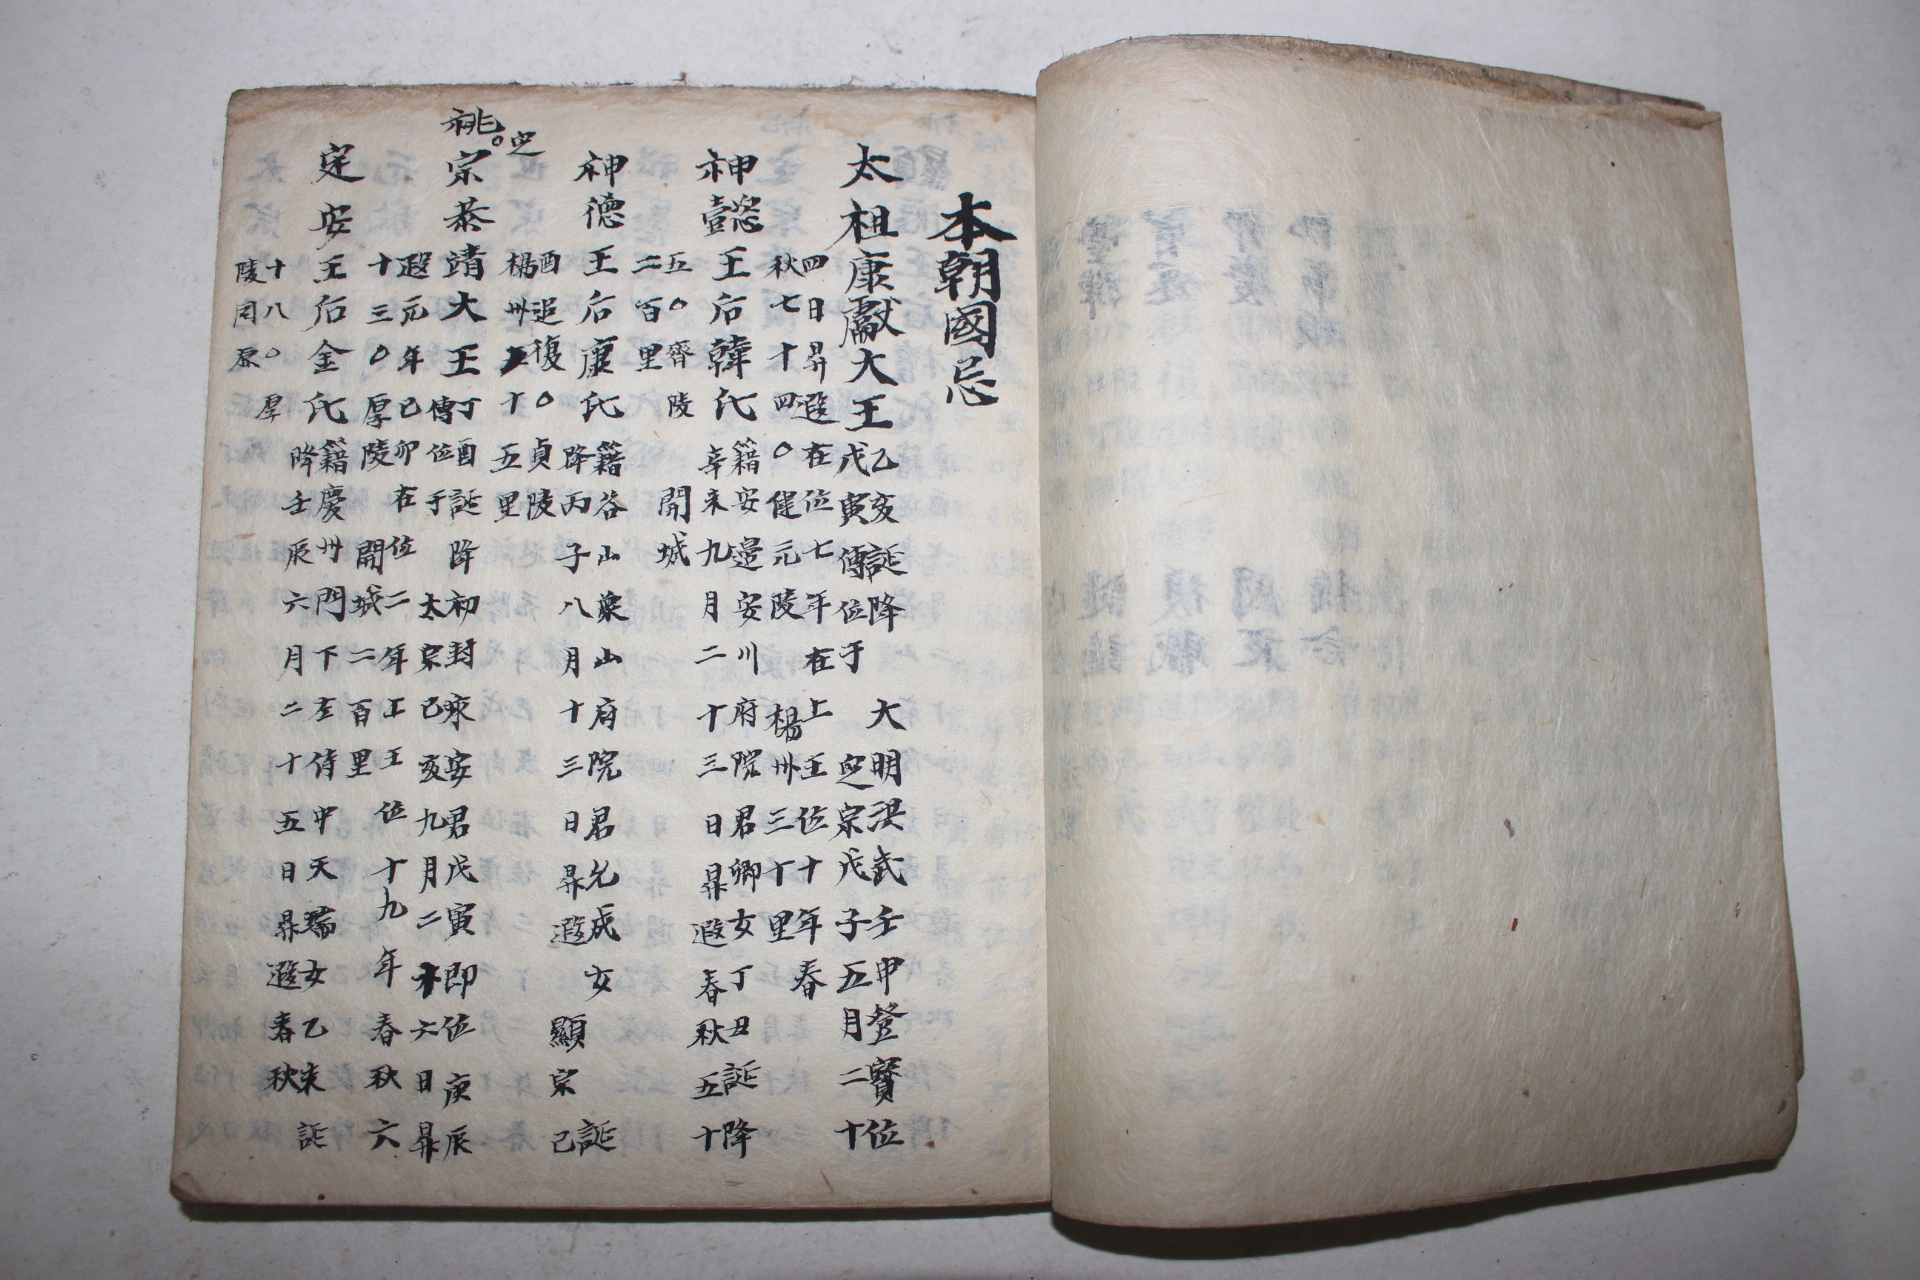 本朝國忌
太祖康獻大王
乙亥誕降 大明洪武壬申登寶位
戊寅傳位于 㝎宗戊子五月二十
四日昇遐在位七年在上王位十年春
秋七十四○健元陵 楊州三十里
神懿王后韓氏
籍安邊安川府院君卿女丁丑誕降
辛未九月二十三日昇遐春秋五十
五○齊陵 開城
二百里
神德王后康氏
籍谷山象山府院君允成女 誕
降丙子八月十三日昇遐 顯宗己
酉追復○貞陵
楊州十五里
祧
㝎宗恭靖大王
丁酉誕降初封永安君戊寅即位庚辰
傳位于 太宗己亥九月二十六日昇
遐元年己卯在位二年上王位十九年春秋六
十三○厚陵 開城二百里
定安王后金氏
籍慶州門下左侍中天瑞女乙未誕
降壬辰六月二十五日昇遐春秋
十八○厚
陵同原